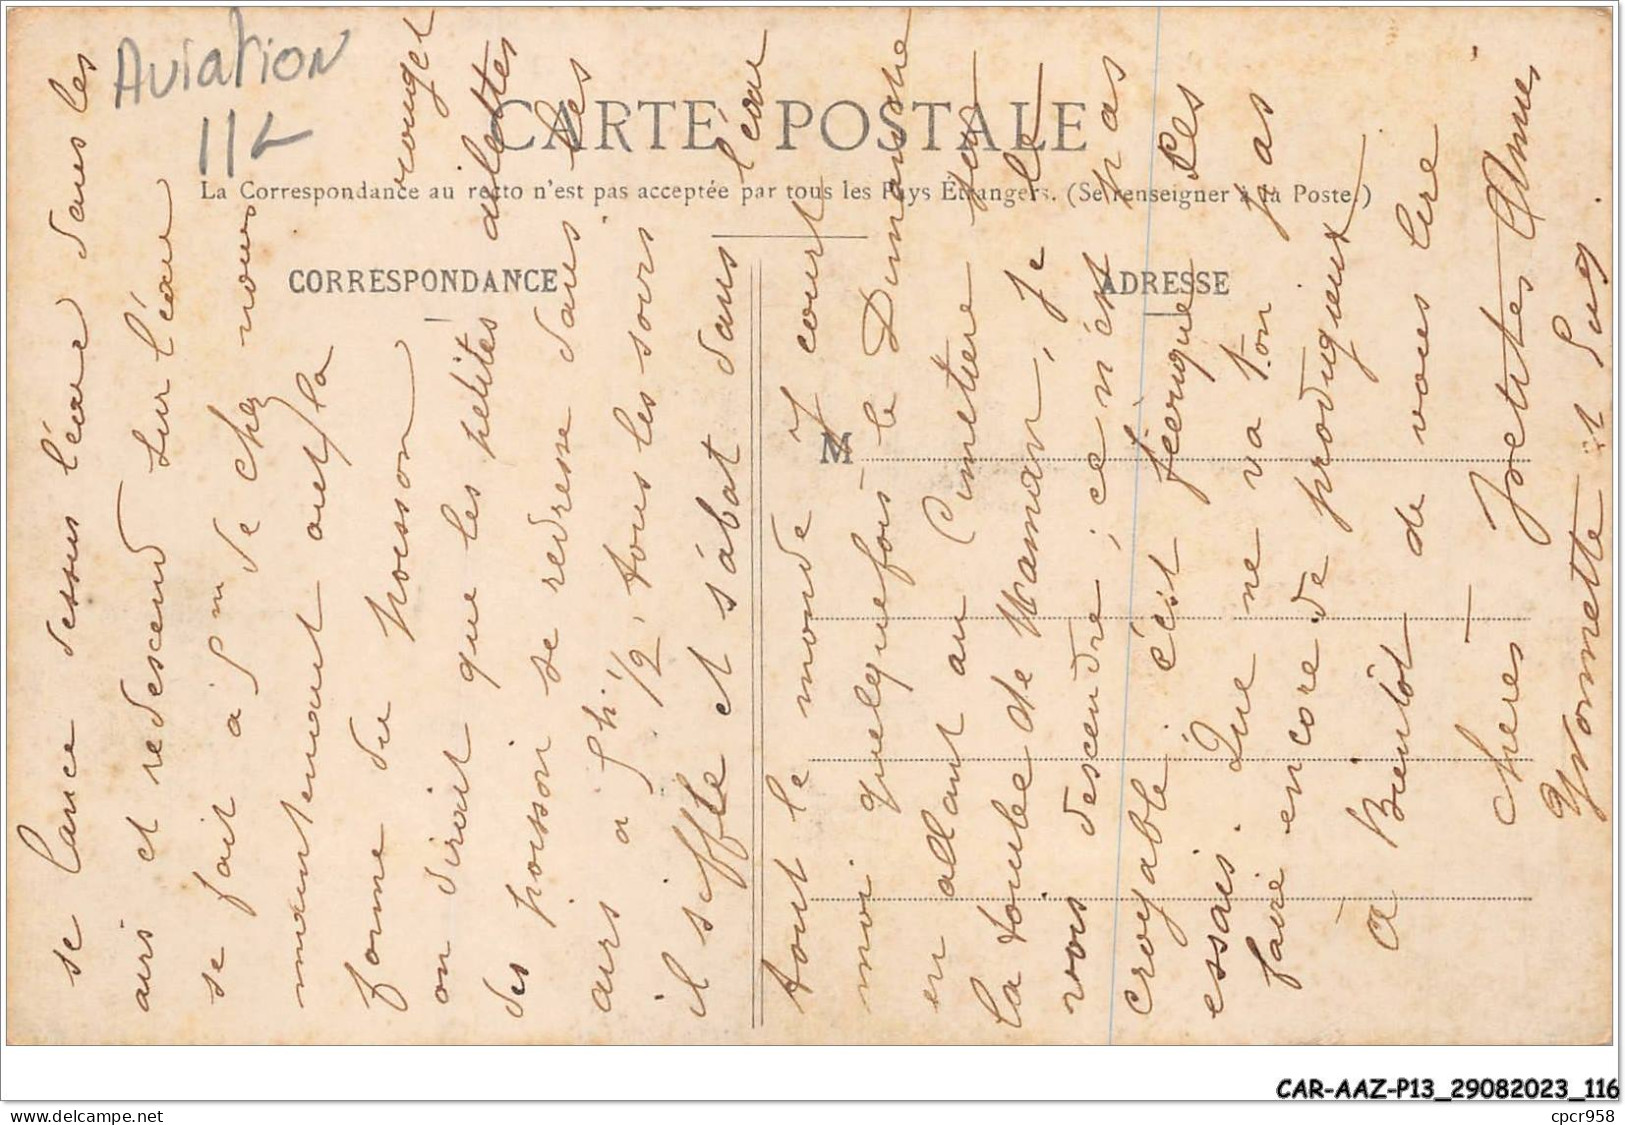 Aviation
112
CARTE POSTALE
La Correspondance au recto n'est pas acceptée par tous les Pays Étrangers. (Se renseigner à la Poste.)
CORRESPONDANCE
ADRESSE
M
se lance dessus l'eau dans les
airs et redescend sur l'eau
se fait à 5 m de chez nous
maintenant out la
forme du poisson rouget
on dirait que les petites ailettes
des poisson se redresse dans les
airs à 5h 1/2, tous les soirs
il siffle et s'ábat dans l'eau
tout le monde y court
moi quelquefois le Dimanche
en allant au Cimetiere sur
la tombe de Maman, je le
vois descendre; ce n'est pas
croyable c'est féerique Ses
essais. Que ne va t.on pas
faire encore de prodigieux
A Bientôt de vous lire
—
chères Joctites Amies
Yvonnette et Suz.
CAR-AAZ-P13_29082023_116
www.delcampe.net
cpcr958